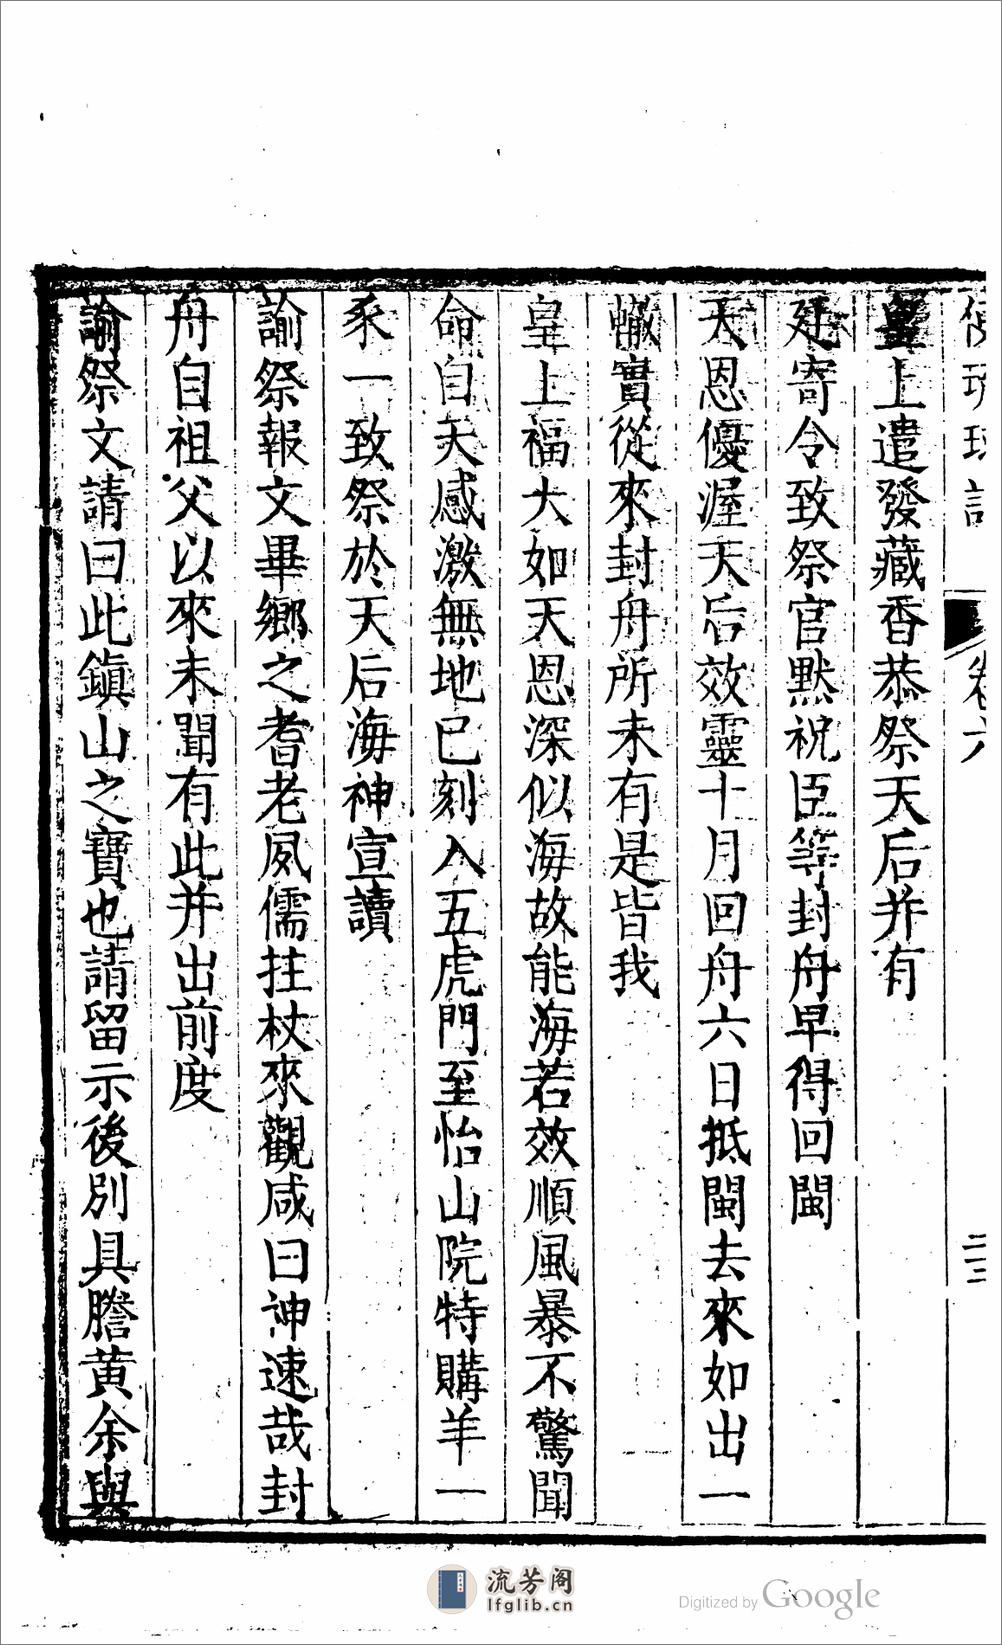 使琉球記 卷六 二三
皇上遣發藏香恭祭天后并有
廷寄令致祭官默祝臣等封舟早得回閩
天恩優渥天后效靈十月回舟六日抵閩去來如出一
轍實從來封舟所未有是皆我
皇上福大如天恩深似海故能海若效順風暴不驚聞
命自天感激無地巳刻入五虎門至怡山院特購羊一
豕一致祭於天后海神宣讀
諭祭報文畢鄉之耆老夙儒拄杖來觀咸曰神速哉封
舟自祖父以來未聞有此并出前度
諭祭文請曰此鎭山之寶也請留示後別具謄黄余與
流芳阁
lfglib.cn
Digitized by Google